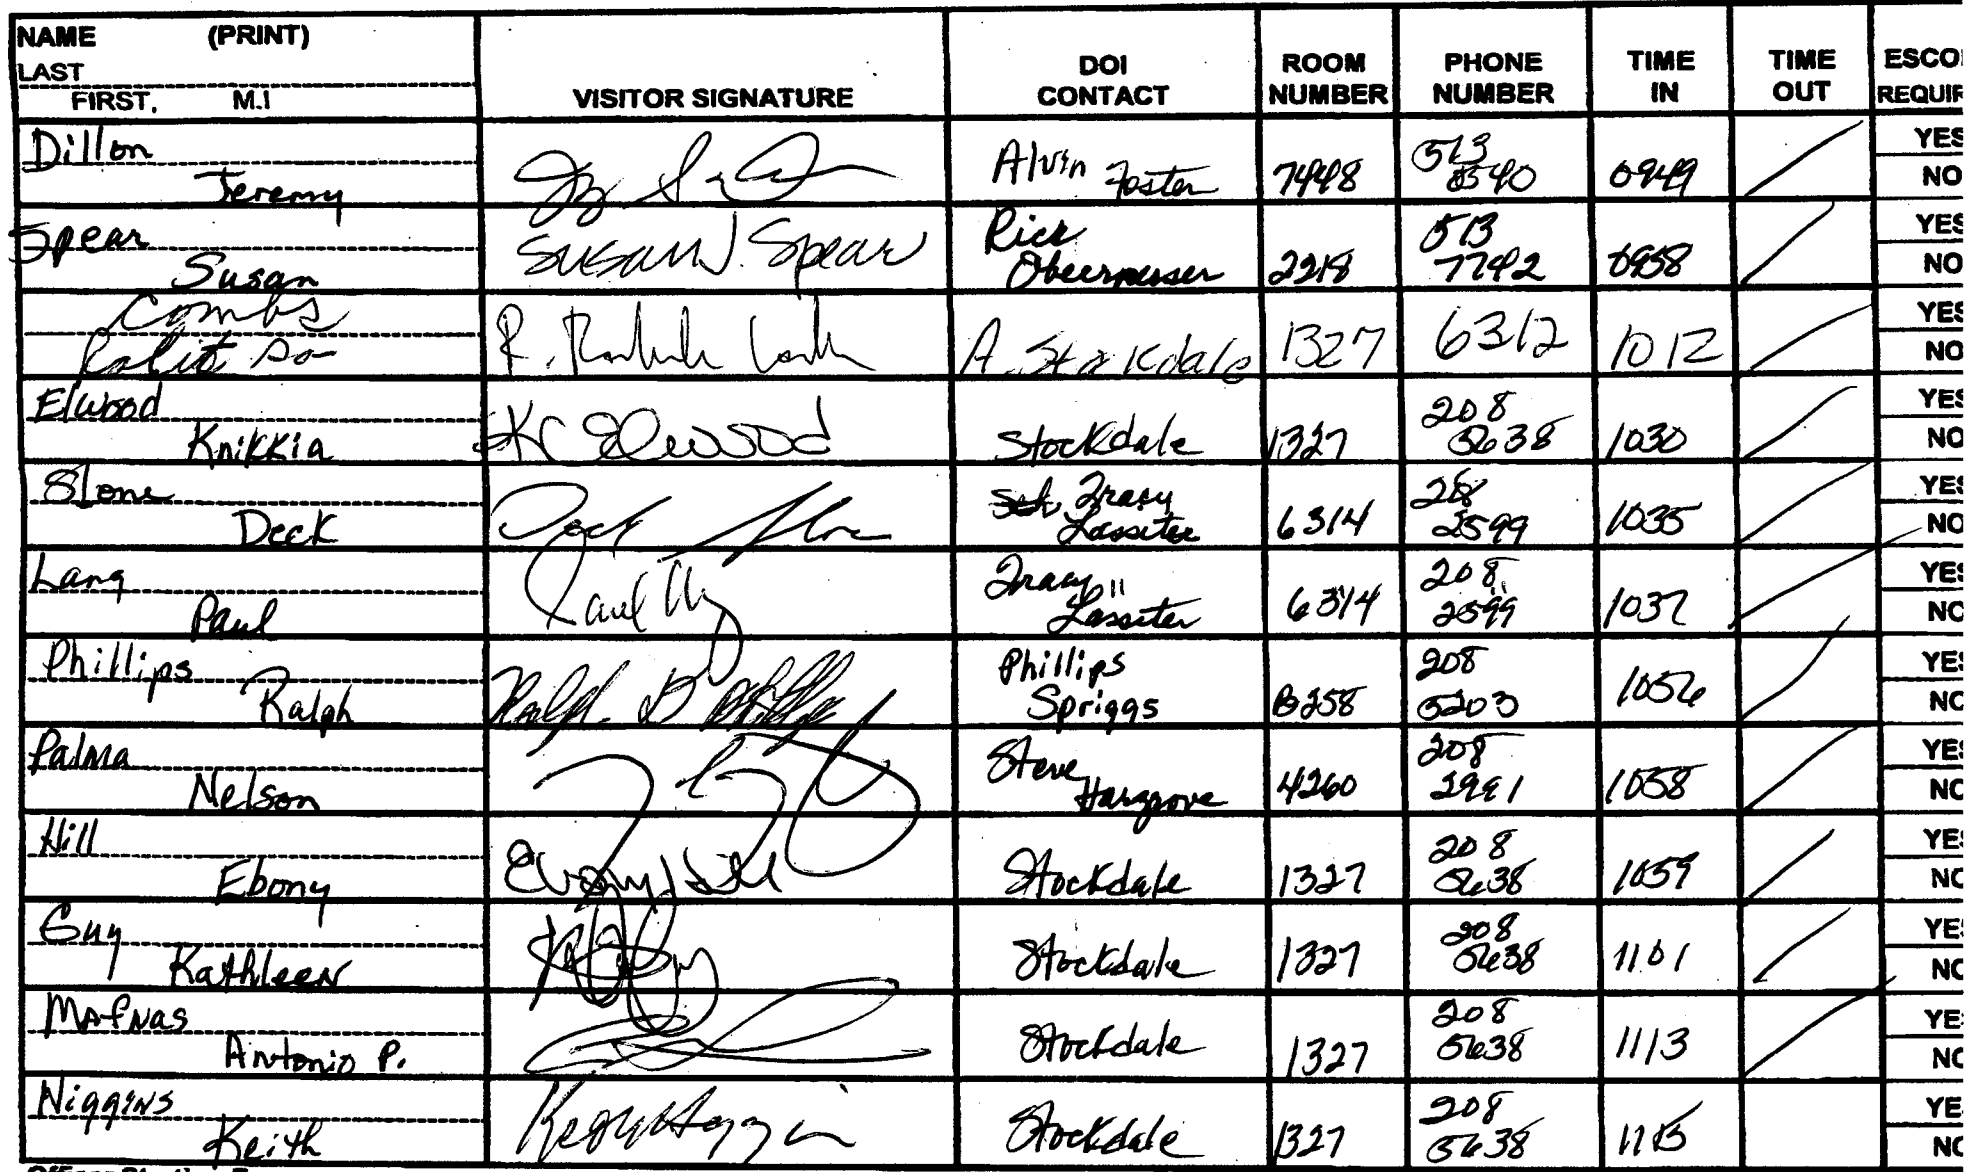 NAME (PRINT)
LAST
FIRST, M.I
VISITOR SIGNATURE
DOI CONTACT
ROOM NUMBER
PHONE NUMBER
TIME IN
TIME OUT
REQUIR
Dillon
Jeremy
Alvin Foster
7448
513
0540
0949
YES
NO
Spear
Susan
Susan J. Spear
Rick
2218
513
7742
0958
YES
NO
Combs
A. Stockdale
1327
6312
1012
YES
NO
Elwood
Knikkia
K Elwood
Stockdale
1327
208
5638
1030
YES
NO
Stone
Deck
Tracy
Lassiter
6314
208
2599
1035
YES
NO
Lang
Paul
Paul
Tracy
Lassiter
6314
208
2599
1037
YES
NO
Phillips
Ralph
Phillips
Spriggs
B258
208
5203
1056
YES
NO
Palma
Nelson
Steve
Hargrove
4260
208
2991
1058
YES
NO
Hill
Ebony
Ebony Hill
Stockdale
1327
208
5638
1059
YES
NO
Guy
Kathleen
Stockdale
1327
208
5638
1101
YE
NO
Mafnas
Antonio P.
Stockdale
1327
208
5638
1113
YE
NO
Niggins
Keith
Stockdale
1327
208
5638
1115
YE
NO